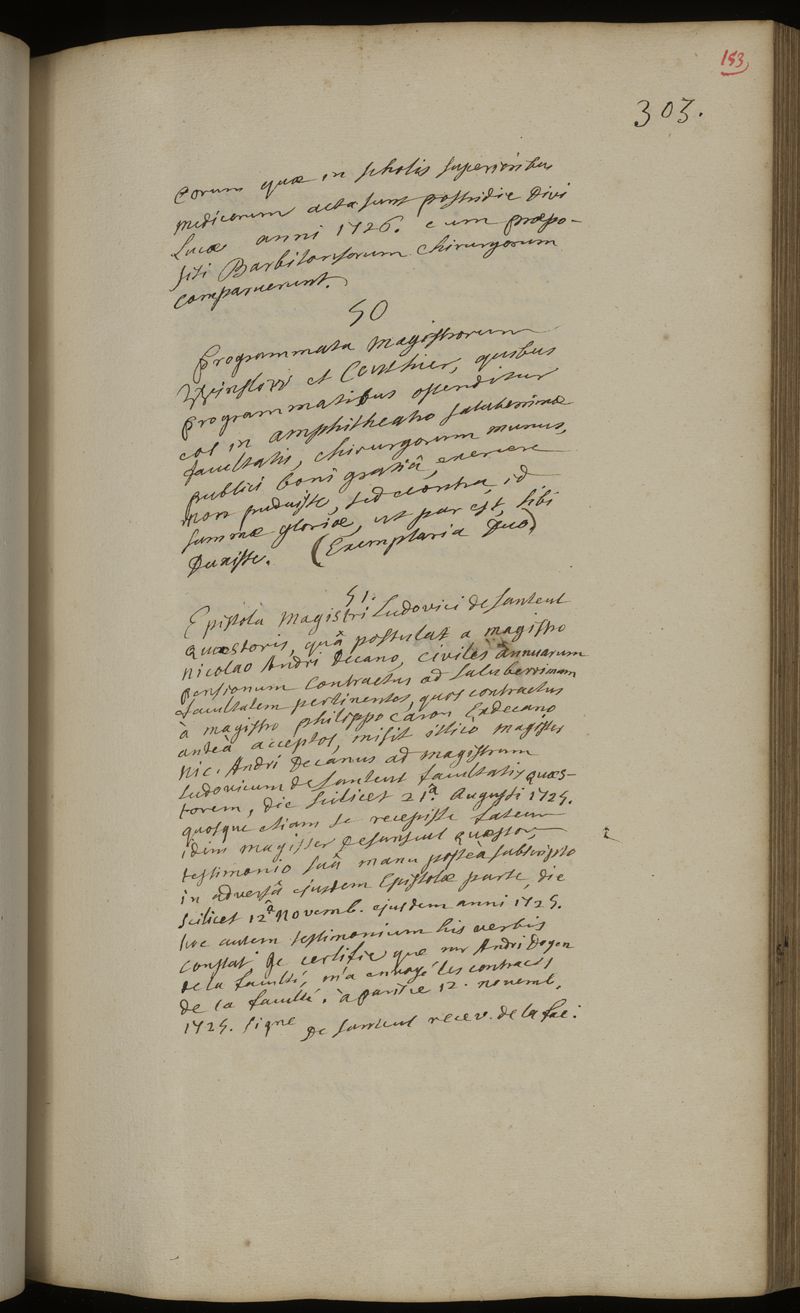 153
303.
eorum quæ in scholis superioribus
medicorum acta sunt postridie Divi
Lucæ anni 1726. cum præpo-
siti Barbitonsorum chirurgorum
comparuerunt.
50
Programmata Magistrorum
Winslow et Couthier, quibus
programmatibus ostenditur
eos in amphitheatro saluberrimæ
facultatis, chirurgorum munus,
publici boni gratiâ, exercere
non puduisse, sed contra, id
summæ gloriæ, ut par est, sibi
Duxisse. (Exemplaria Duo)
51.
Epistola Magistri Ludovici de Santeul
quæstoris, quâ postulat a magistro
Nicolao Andri Decano, civiles annuarum
pensionum contractus ad saluberrimam
facultatem pertinentes, quos contractus
à magistro philippo caron Exdecano
anteà acceptos, misit illicò magister
Nic. Andri Decanus ad magistrum
Ludovicum de Santeul facultatis quæs-
torem, die scilicet 21ª. Augusti 1725.
quosque etiam se recepisse fatetur
idem magister De Santeul quæstor,
testimonio suâ manu posteà subscripto
in adversâ ejusdem Epistolæ parte, die
scilicet 12ª Novemb. ejusdem anni 1725.
hoc autem testimonium his verbis
constat Je certifie que mr Andri Doyen
de la faculté, m'a envoyé les contracts
de la faculté. à paris ce 12. novemb.
1725. signé De Santeul recev. de la fac: